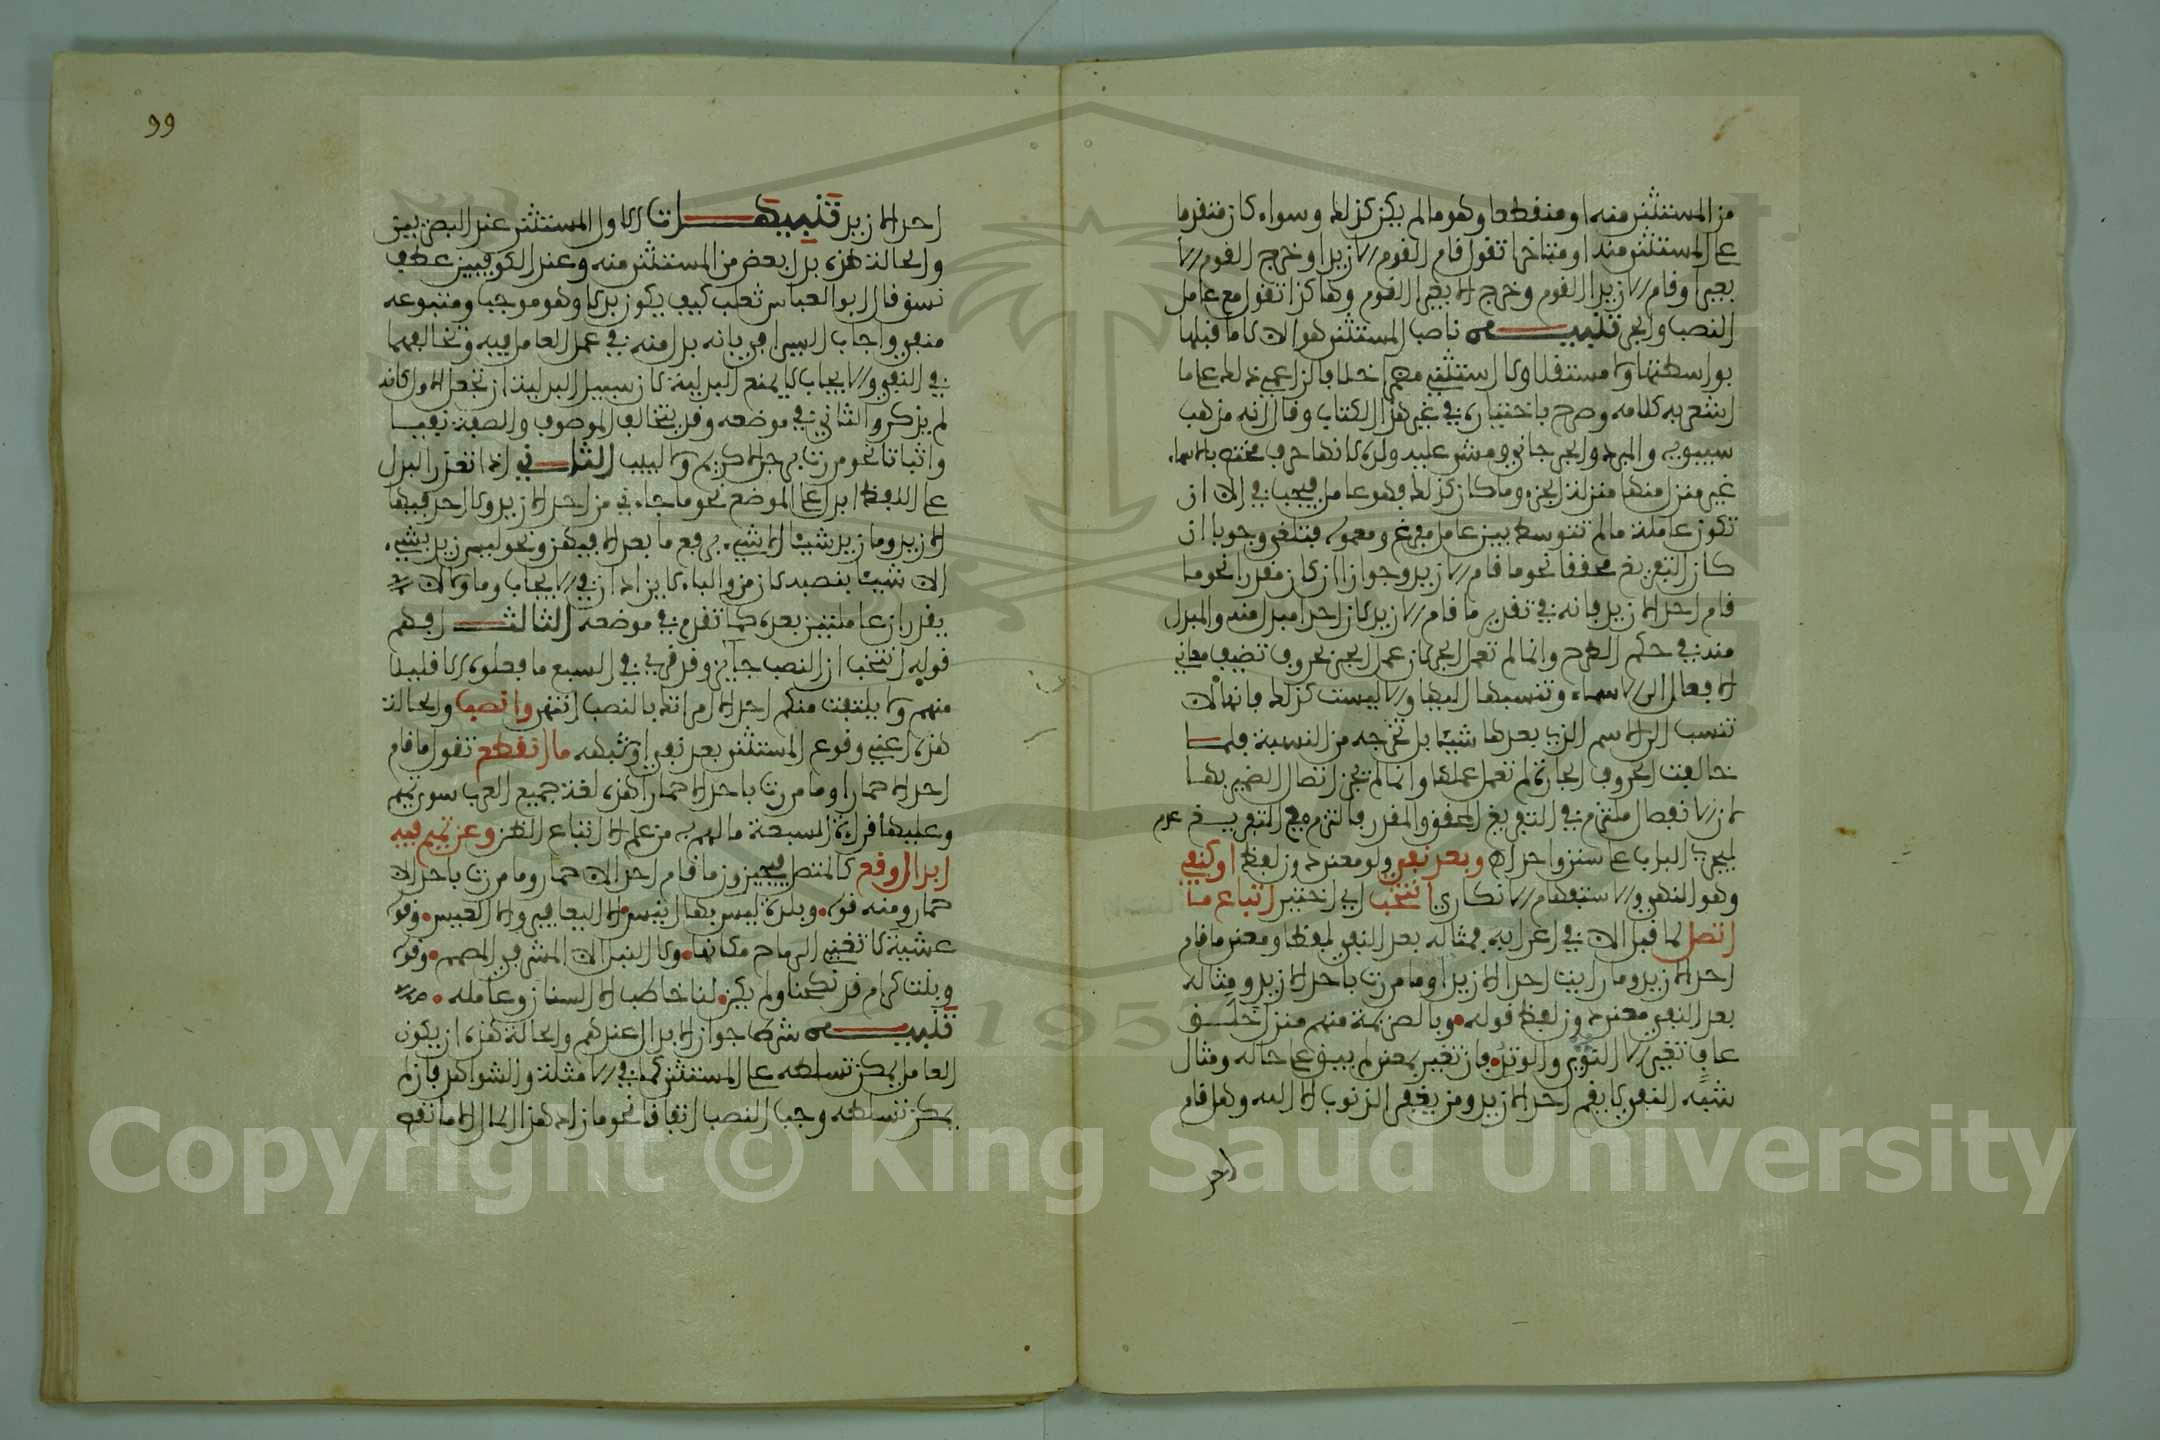 من المستثنى منه او منقطعا وهو ما لم يكن كذلك وسواء كان متقدما
على المستثنى منه او متاخرا تقول قام القوم الا زيدا وخرج القوم الا
بعيرا وقام الا زيدا القوم وخرج الا بعيرا القوم وهكذا تقول مع عامل
النصب والجر تنبيه ناصب المستثنى هو الا لا ما قبلها
بواسطتها ولا مستقلا ولا استثنى مضمرا خلافا لزاعمي ذلك على ما
اشعر به كلامه وصرح باختياره في غير هذا الكتاب وقال انه مذهب
سيبويه والمبرد والجرجاني ومشى عليه ولده لانها حرف مختص بالاسماء
غير منزل منها منزلة الجزء وما كان كذلك فهو عامل فيجب في الا ان
تكون عاملة ما لم تتوسط بين عامل مفرغ ومعموله فتلغى وجوبا ان
كان التفريغ محققا نحو ما قام الا زيد وجوازا ان كان مقدرا نحو ما
قام احد الا زيد فانه في تقدير ما قام الا زيد لان احدا مبدل منه والمبدل
منه في حكم الطرح وانما لم تعمل الجر لان عمل الجر بحروف تضيف معاني
الافعال الى الاسماء وتنسبها اليها والا ليست كذلك فانها لا
تنسب الى الاسم الذي بعدها شيئا بل تخرجه من النسبة فلما
خالفت الحروف الجارة لم تعمل عملها وانما لم يجز اتصال الضمير بها
لان الانفصال ملتزم في التفريغ المحقق والمقدر فالتزم مع التفريغ عدم
ليجري الباب على سنن واحد اه وبعد نفي ولو معنى دون لفظ او كنفي
وهو النهي والاستفهام الانكاري انتخب اي اختير اتباع ما
اتصل لما قبل الا في اعرابه فمثاله بعد النفي لفظا ومعنى ما قام
احد الا زيد وما رايت احدا الا زيدا وما مررت باحد الا زيد ومثاله
بعد النفي معنى دون لفظ قوله وبالصريمة منهم منزل خلق
عاف تغير الا النؤي والوتد فان تغير بمعنى لم يبق على حاله ومثال
شبه النفي لا يقم احد الا زيد ومن يغفر الذنوب الا الله وهل قام
احد
99
احد الا زيد تنبيهات الاول المستثنى عند البصريين
والحالة هذه بدل بعض من المستثنى منه وعند الكوفيين عطف
نسق قال ابو العباس ثعلب كيف يكون بدلا وهو موجب ومتبوعه
منفي واجاب السيرافي بانه بدل منه في عمل العامل فيه وتخالفهما
في النفي والايجاب لا يمنع البدلية لان سبيل البدلية ان تجعل الاول كانه
لم يذكر والثاني في موضعه وقد يتخالف الموصوف والصفة نفيا
واثباتا نحو مررت برجل لا كريم ولا لبيب الثاني اذا تعذر البدل
على اللفظ ابدل على الموضع نحو ما جاءني من احد الا زيد ولا احد فيها
الا زيد وما زيد شيئا الا شيء برفع ما بعد الا فيهن ونحو ليس زيد بشيء
الا شيئا بنصبه لان من والباء لا يزادان في الايجاب وما ولا لا
يقدران عاملتين بعده كما تقدم في موضعه الثالث افهم
قوله انتخب ان النصب جائز وقد قرئ في السبع ما فعلوه الا قليلا
منهم ولا يلتفت منكم احد الا امراتك بالنصب انتهى وانصب والحالة
هذه اعني وقوع المستثنى بعد نفي او شبهه ما انقطع تقول ما قام
احد الا حمارا وما مررت باحد الا حمارا هذه لغة جميع العرب سوى تميم
وعليها قراءة السبعة ما لهم به من علم الا اتباع الظن وعن تميم فيه
ابدال وقع كالمتصل فيجيزون ما قام احد الا حمار وما مررت باحد الا
حمار ومنه قوله وبلدة ليس بها انيس الا اليعافير والا العيس وقوله
عشية لا تغني الرماح مكانها ولا النبل الا المشرفي المصمم وقوله
وبنت كرام قد نكحنا ولم يكن لنا خاطب الا السنان وعامله
تنبيه شرط جواز الابدال عندهم والحالة هذه ان يكون
العامل يمكن تسلطه على المستثنى كما في الامثلة والشواهد فان لم
يمكن تسلطه وجب النصب اتفاقا نحو ما زاد هذا المال الا ما نقص